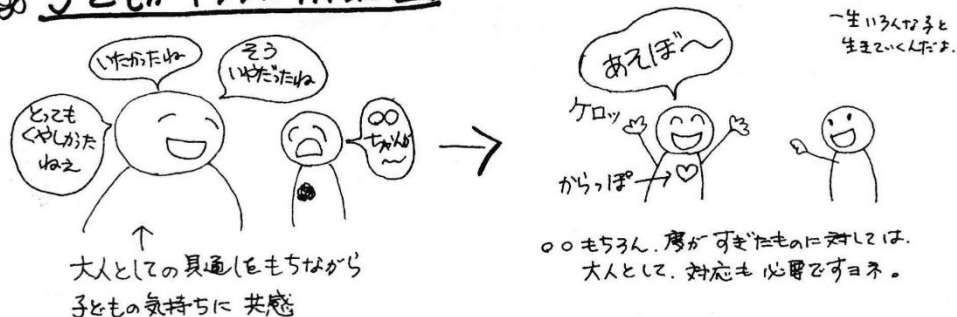 いたかったね
そう
いやだったね
とっても
くやしかった
ねえ
○○
ちゃんが
〜
↑
大人としての見通しをもちながら
子どもの気持ちに 共感
→
あそぼ〜
ケロッ
からっぽ→
一生いろんな子と
生きていくんだよ。
○○もちろん、度がすぎたものに対しては、
大人として、対応も必要ですヨネ。